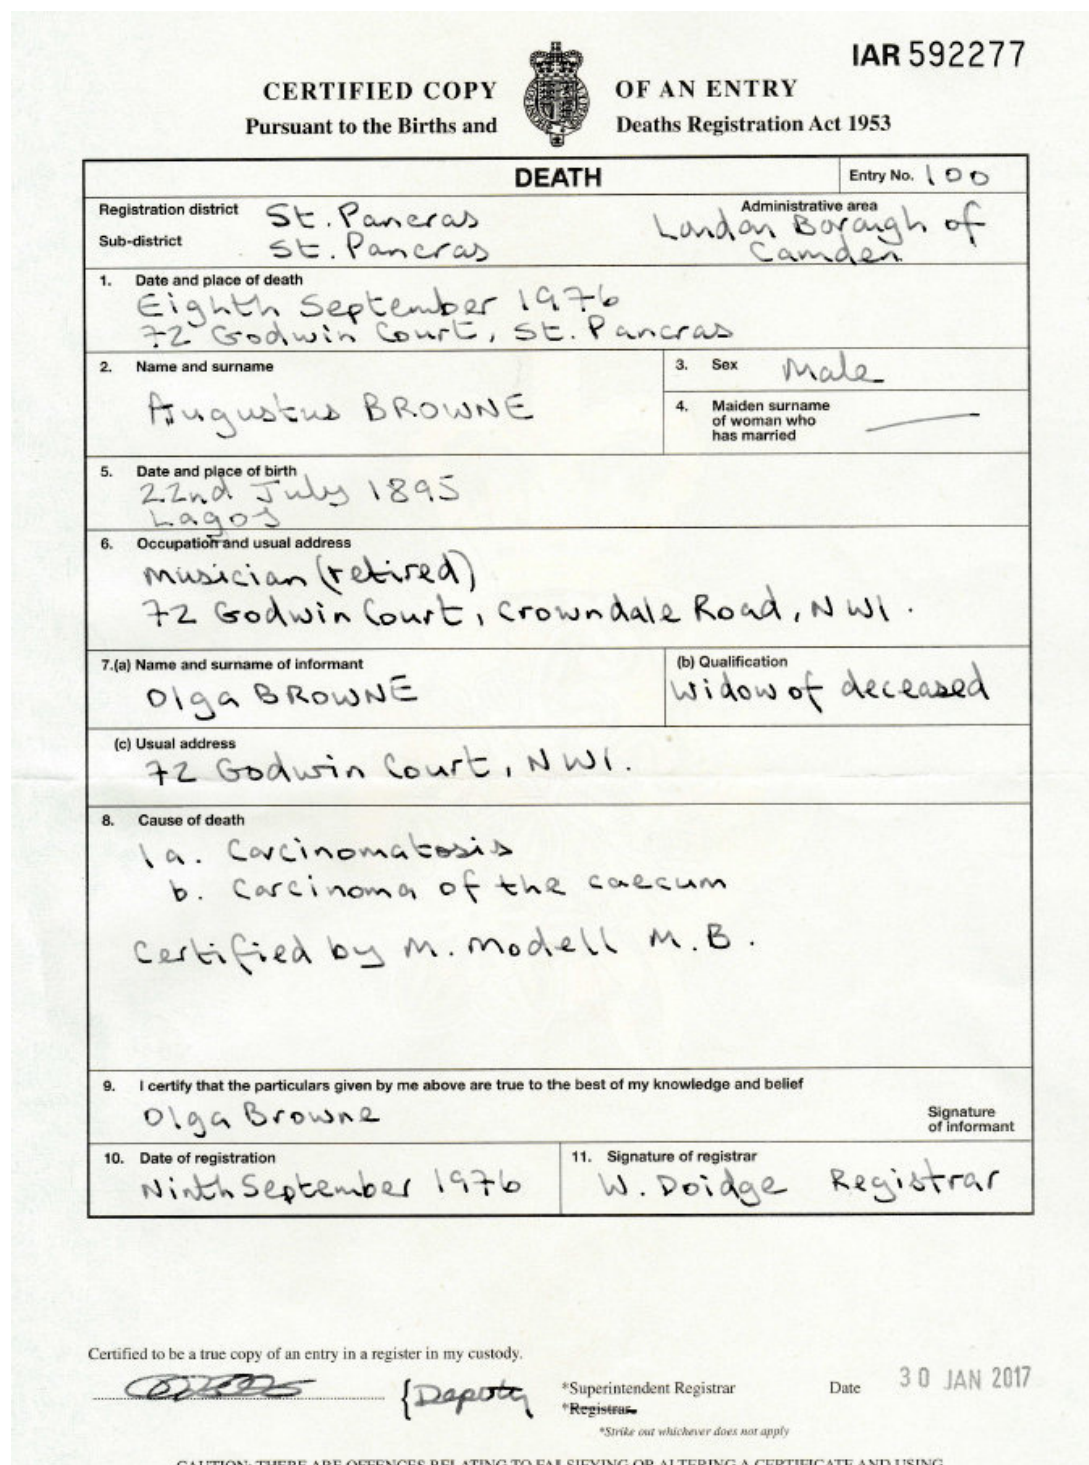 IAR 592277
CERTIFIED COPY OF AN ENTRY
Pursuant to the Births and Deaths Registration Act 1953
DEATH
Entry No. 100
Registration district St. Pancras
Administrative area
Sub-district St. Pancras
London Borough of
Camden
1. Date and place of death
Eighth September 1976
72 Godwin Court, St. Pancras
2. Name and surname
Augustus BROWNE
3. Sex Male
4. Maiden surname
of woman who
has married
5. Date and place of birth
22nd July 1895
Lagos
6. Occupation and usual address
Musician (retired)
72 Godwin Court, Crowndale Road, NW1.
7.(a) Name and surname of informant
Olga BROWNE
(b) Qualification
Widow of deceased
(c) Usual address
72 Godwin Court, NW1.
8. Cause of death
1a. Carcinomatosis
b. Carcinoma of the caecum
Certified by M. Modell M.B.
9. I certify that the particulars given by me above are true to the best of my knowledge and belief
Olga Browne
Signature
of informant
10. Date of registration
Ninth September 1976
11. Signature of registrar
W. Doidge Registrar
Certified to be a true copy of an entry in a register in my custody.
Deputy
*Superintendent Registrar
*Registrar
Date 30 JAN 2017
*Strike out whichever does not apply
CAUTION: THERE ARE OFFENCES RELATING TO FALSIFYING OR ALTERING A CERTIFICATE AND USING